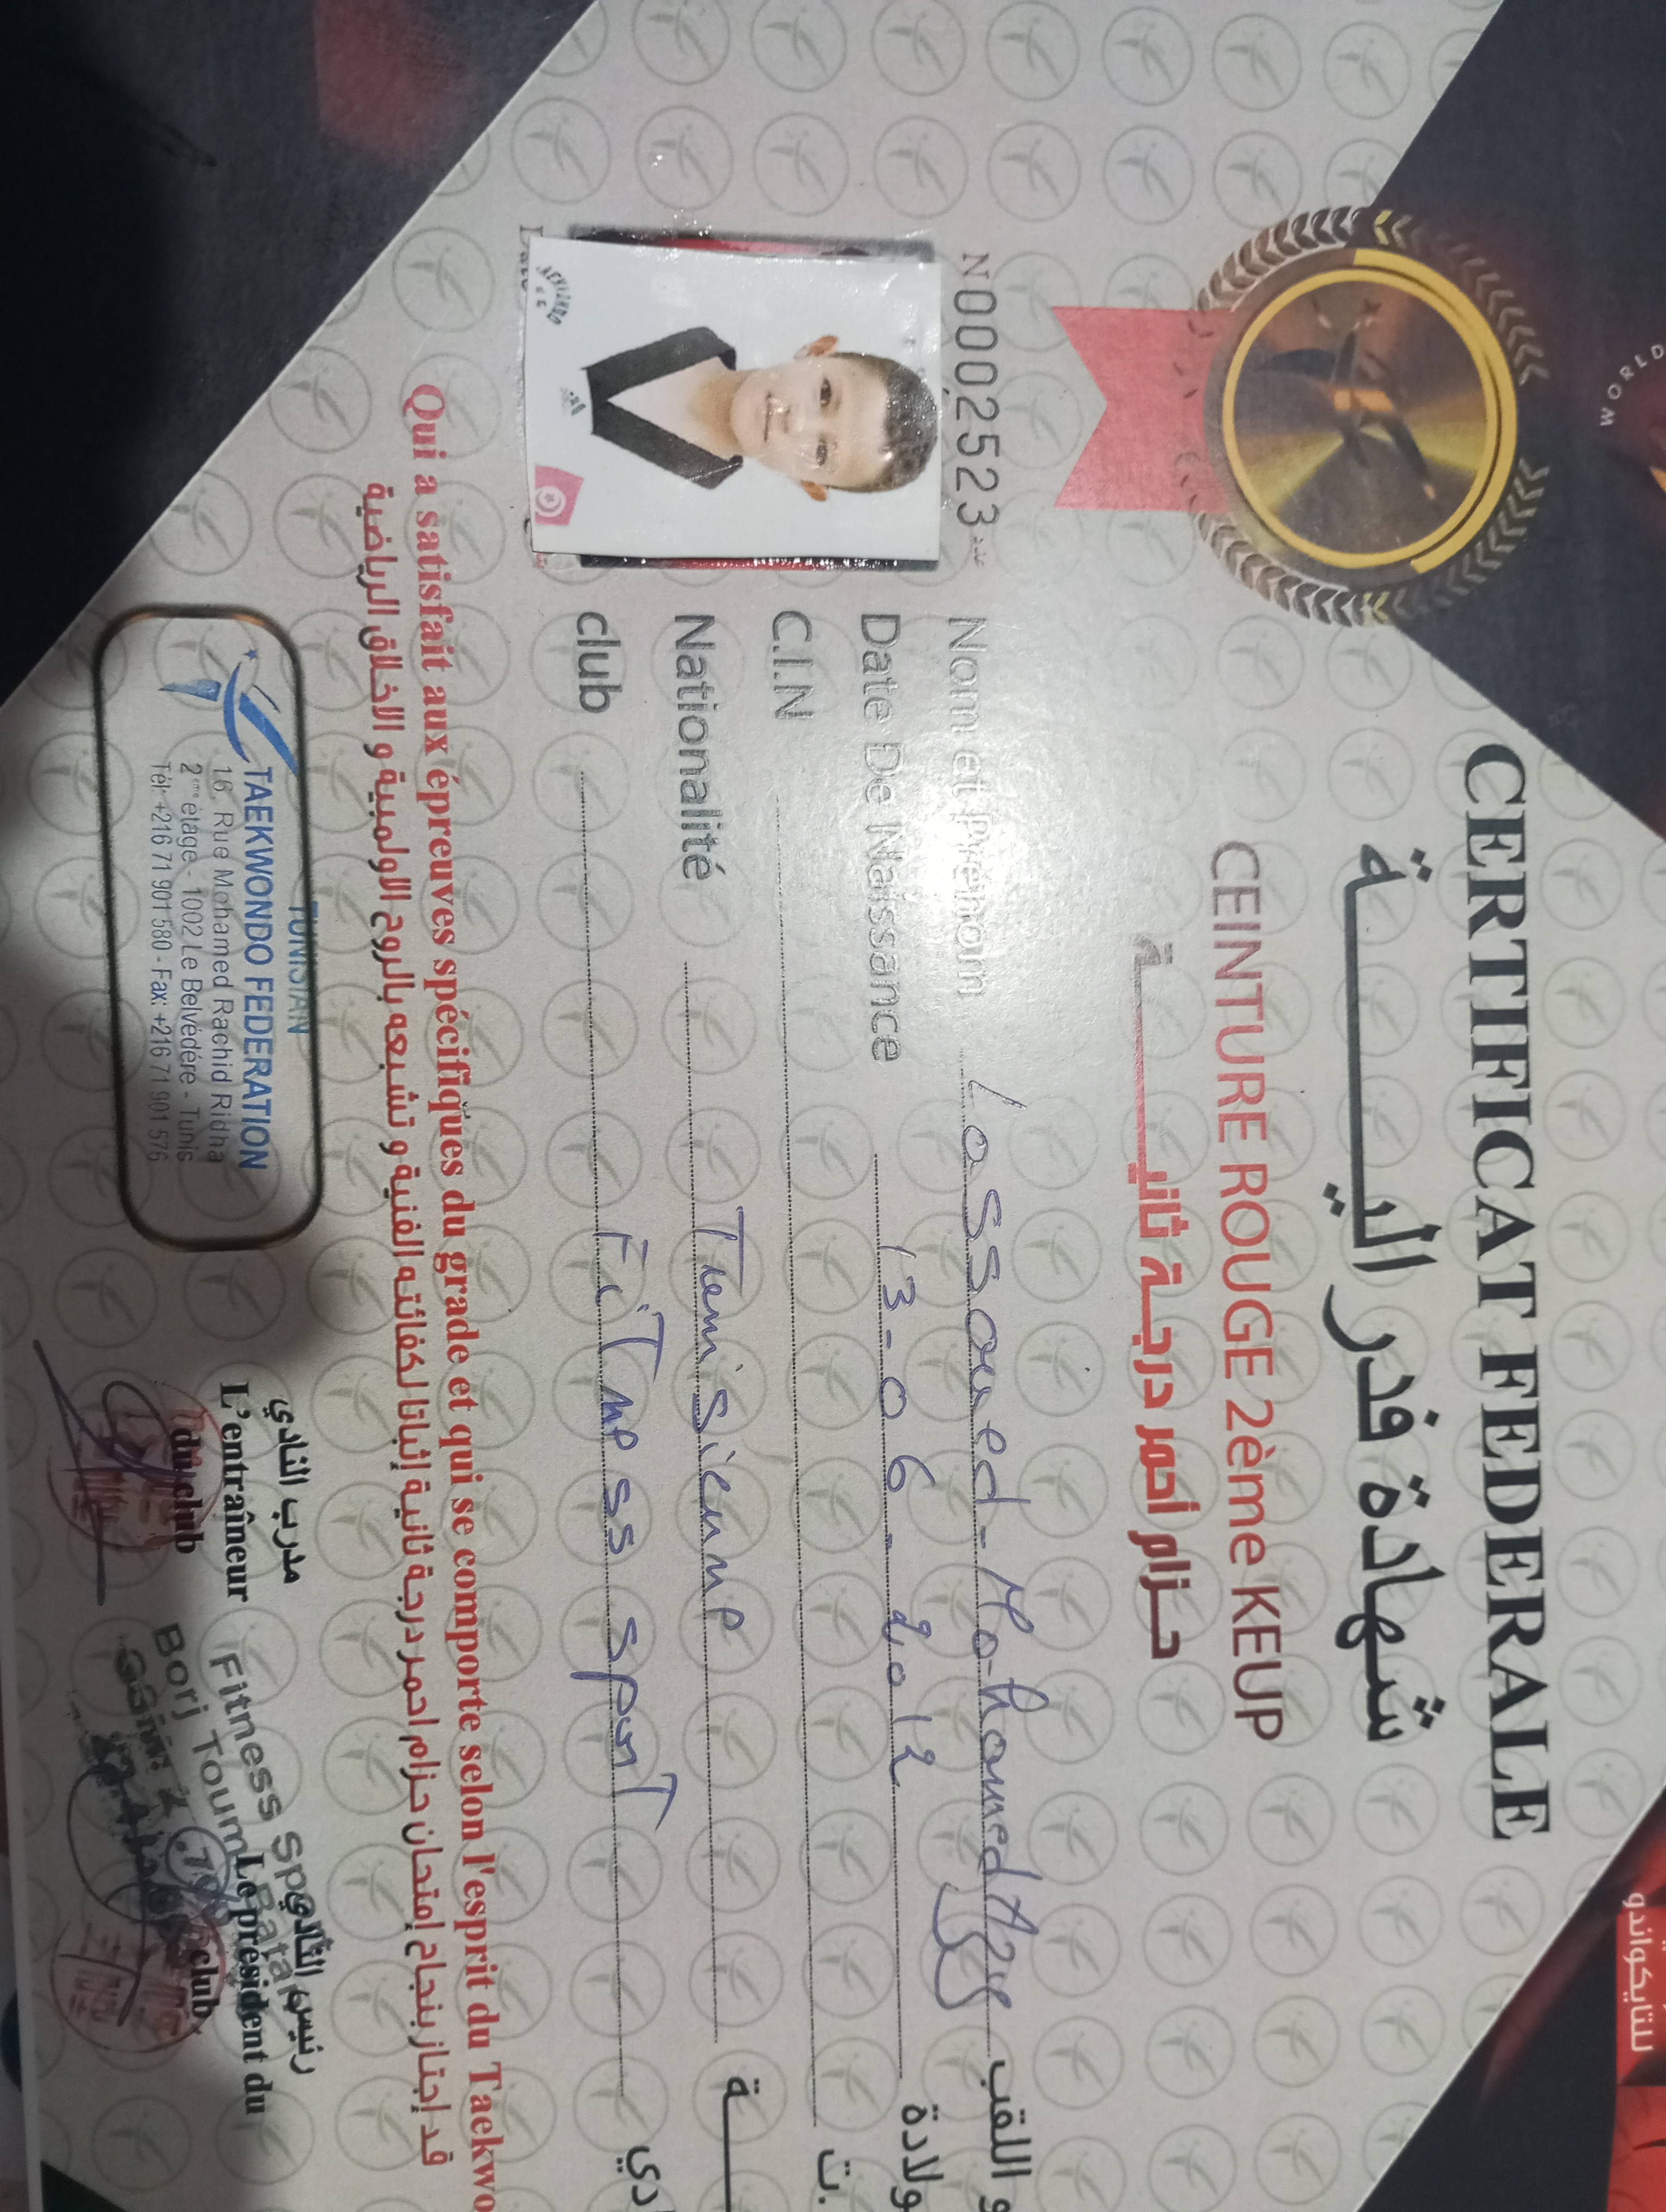 WORLD
CERTIFICAT FEDERALE
شهادة فدراليـــــة
CEINTURE ROUGE 2ème KEUP
حزام أحمر درجة ثانيـــــة
N 0002523 عدد
Nom et Prénom Lassoued-Mohamed و اللقب
Date De Naissance 13-06-2012 ولادة
C.I.N ت.
Nationalité Tunisienne ـة
club FiTness sporT دي
Qui a satisfait aux épreuves spécifiques du grade et qui se comporte selon l'esprit du Taekwo
قد إجتاز بنجاح إمتحان حزام احمر درجة ثانية إثباتا لكفائته الفنية و تشبعه بالروح الاولمبية و الاخلاق الرياضية
TUNISIAN
TAEKWONDO FEDERATION
16, Rue Mohamed Rachid Ridha
2ème étage - 1002 Le Belvédère - Tunis
Tél: +216 71 901 580 - Fax: +216 71 901 576
مدرب النادي
L'entraîneur
du club
رئيس النادي
Le président du
club
Fitness Sport
Borj Toumi Batan
للتايكواندو